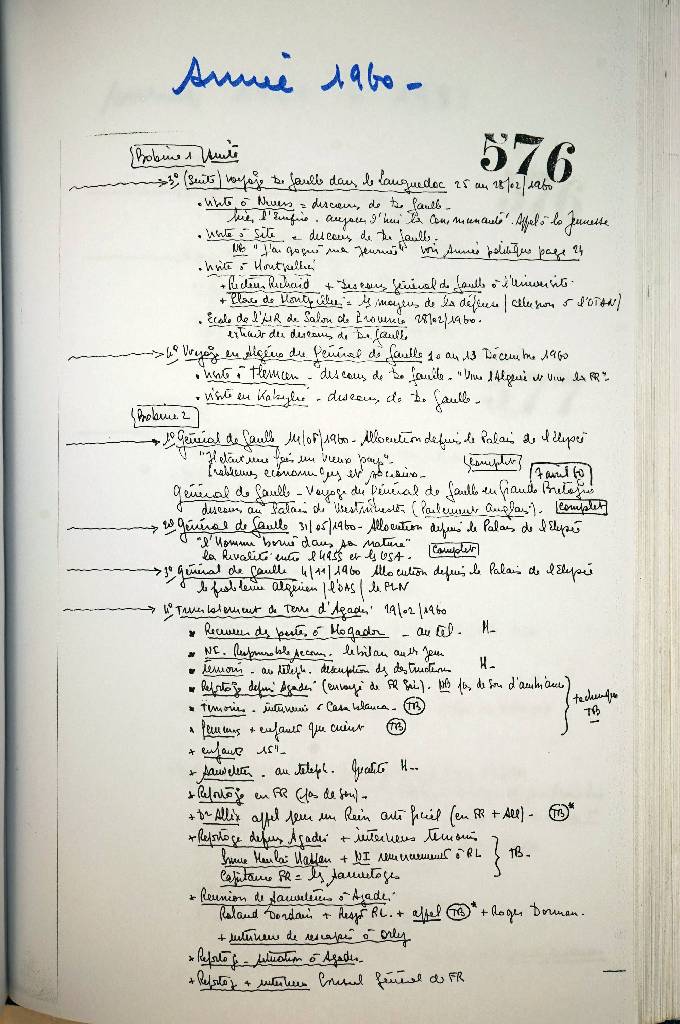 Année 1960 -
576
Bobine 1 Suite
3° (Suite) Voyage De Gaulle dans le Languedoc 25 au 28/02/1960
• Visite à Nîmes = discours de De Gaulle -
hier l'Empire - aujourd'hui la communauté. Appel à la Jeunesse
• Visite à Sète = discours de De Gaulle.
NB "J'ai gagné ma journée" voir Année politique page 24
• Visite à Montpellier
+ Recteur Richard + Discours Général de Gaulle à l'Université
+ Place de Montpellier = les moyens de la défense / allusion à l'OTAN /
• Ecole de l'AIR de Salon de Provence 28/02/1960.
extrait du discours de De Gaulle
4° Voyage en Algérie du Général de Gaulle 10 au 13 Décembre 1960
• Visite à Tlemcen - discours de De Gaulle - "Vive l'Algérie et vive la FR".
• Visite en Kabylie - discours de De Gaulle -
Bobine 2
1° Général de Gaulle 14/06/1960 - Allocution depuis le Palais de l'Elysée
"Il était une fois un vieux pays" -
Problèmes économiques et sociaux - complet
7 avril 60
Général de Gaulle - Voyage du Général de Gaulle en Grande Bretagne
discours au Palais de Westminster (Parlement Anglais). complet
2° Général de Gaulle 31/05/1960 - Allocution depuis le Palais de l'Elysée
"l'Homme borné dans sa nature"
la Rivalité entre l'URSS et les USA. complet
3° Général de Gaulle 4/11/1960 Allocution depuis le Palais de l'Elysée
le problème algérien / l'OAS / le FLN
4° Tremblement de Terre d'Agadir 29/02/1960
• Receveur des postes à Mogador - au tel. H-
• NI. Responsable secours. le bilan au 1er jour
• témoin - au téléph. description des destructions H-
• Reportage depuis Agadir (envoyé de FR Soir). NB pas de son d'ambiance
+ Témoins - interviews à Casablanca - TB
technique TB
+ Femmes + enfants qui crient TB
+ enfants 15"-
+ Sauveteur - au téléph. Qualité H-
+ Reportage en FR (pas de son) -
+ Dr Allix appel pour un Rein artificiel (en FR + All) - TB*
+ Reportage depuis Agadir + interviews témoins
Prince Moulai Hassan + NI remerciements à RL TB -
Capitaine FR = les sauvetages
+ Réunion de sauveteurs à Agadir
Roland Dordain + Resp RL. + appel TB* + Roger Dorman.
+ interview de rescapés à Orly
+ Reportage - situation à Agadir -
+ Reportage + interview Consul Général de FR